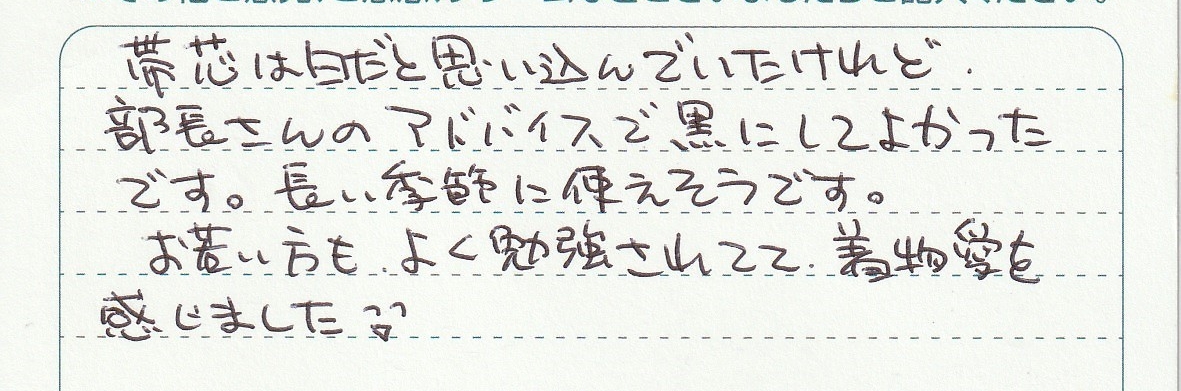 帯芯は白だと思い込んでいたけれど、
部長さんのアドバイスで黒にしてよかった
です。長い季節に使えそうです。
お若い方も、よく勉強されてて、着物愛を
感じました